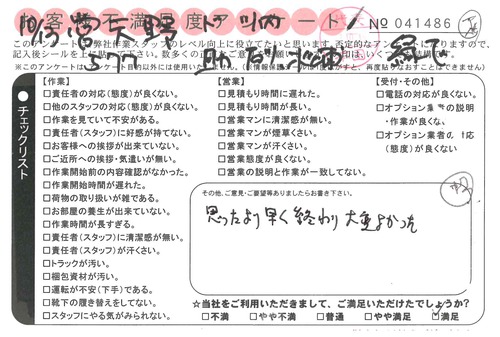 お客様不満足度アンケート
No 041486
このアンケートは弊社作業スタッフのレベル向上に役立てたいと思います。否定的なアンケートになりますので、
(※このアンケートはアンケート目的以外には使用いたしません。
チェックリスト
【作業】
□責任者の対応(態度)が良くない。
□他のスタッフの対応(態度)が良くない。
□作業を見ていて不安がある。
□責任者(スタッフ)に好感が持てない。
□お客様への挨拶が出来ていない。
□ご近所への挨拶・気遣いが無い。
□作業開始前の内容確認がなかった。
□作業開始時間が遅れた。
□荷物の取り扱いが雑である。
□お部屋の養生が出来ていない。
□作業時間が長すぎる。
□責任者(スタッフ)に清潔感が無い。
□責任者(スタッフ)が汗くさい。
□トラックが汚い。
□梱包資材が汚い。
□運転が不安(下手)である。
□靴下の履き替えをしてない。
□スタッフにやる気がみられない。
【営業】
□見積もり時間に遅れた。
□見積もり時間が長い。
□営業マンに清潔感が無い。
□営業マンが煙草くさい。
□営業マンが汗くさい。
□営業態度が良くない。
□営業の説明と作業が一致してない。
【受付・その他】
□電話の対応が良くない。
□オプション業者の説明
・作業が良くない。
□オプション業者の対応
(態度)が良くない
その他、ご意見・ご要望等ありましたらお書き下さい。
思ったより早く終わり大変よかった
☆当社をご利用いただきまして、ご満足いただけたでしょうか?
□不満 □やや不満 □普通 □やや満足 □満足